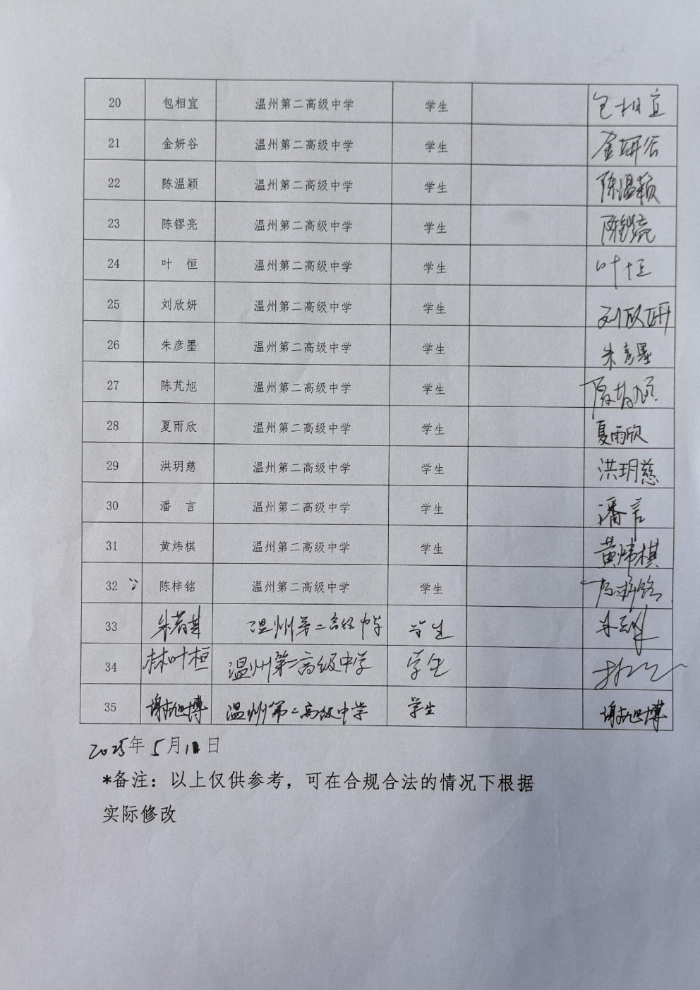 20 包相宜 温州第二高级中学 学生 包相宜
21 金妍谷 温州第二高级中学 学生 金妍谷
22 陈温颖 温州第二高级中学 学生 陈温颖
23 陈镠亮 温州第二高级中学 学生 陈镠亮
24 叶 恒 温州第二高级中学 学生 叶恒
25 刘欣妍 温州第二高级中学 学生 刘欣妍
26 朱彦墨 温州第二高级中学 学生 朱彦墨
27 陈芃旭 温州第二高级中学 学生
28 夏雨欣 温州第二高级中学 学生 夏雨欣
29 洪玥慈 温州第二高级中学 学生 洪玥慈
30 潘 言 温州第二高级中学 学生 潘言
31 黄炜棋 温州第二高级中学 学生 黄炜棋
32 陈梓铭 温州第二高级中学 学生
33 温州第二高级中学 学生
34 林叶桓 温州第二高级中学 学生
35 谢旭博 温州第二高级中学 学生 谢旭博
2025年5月 日
*备注：以上仅供参考，可在合规合法的情况下根据
实际修改